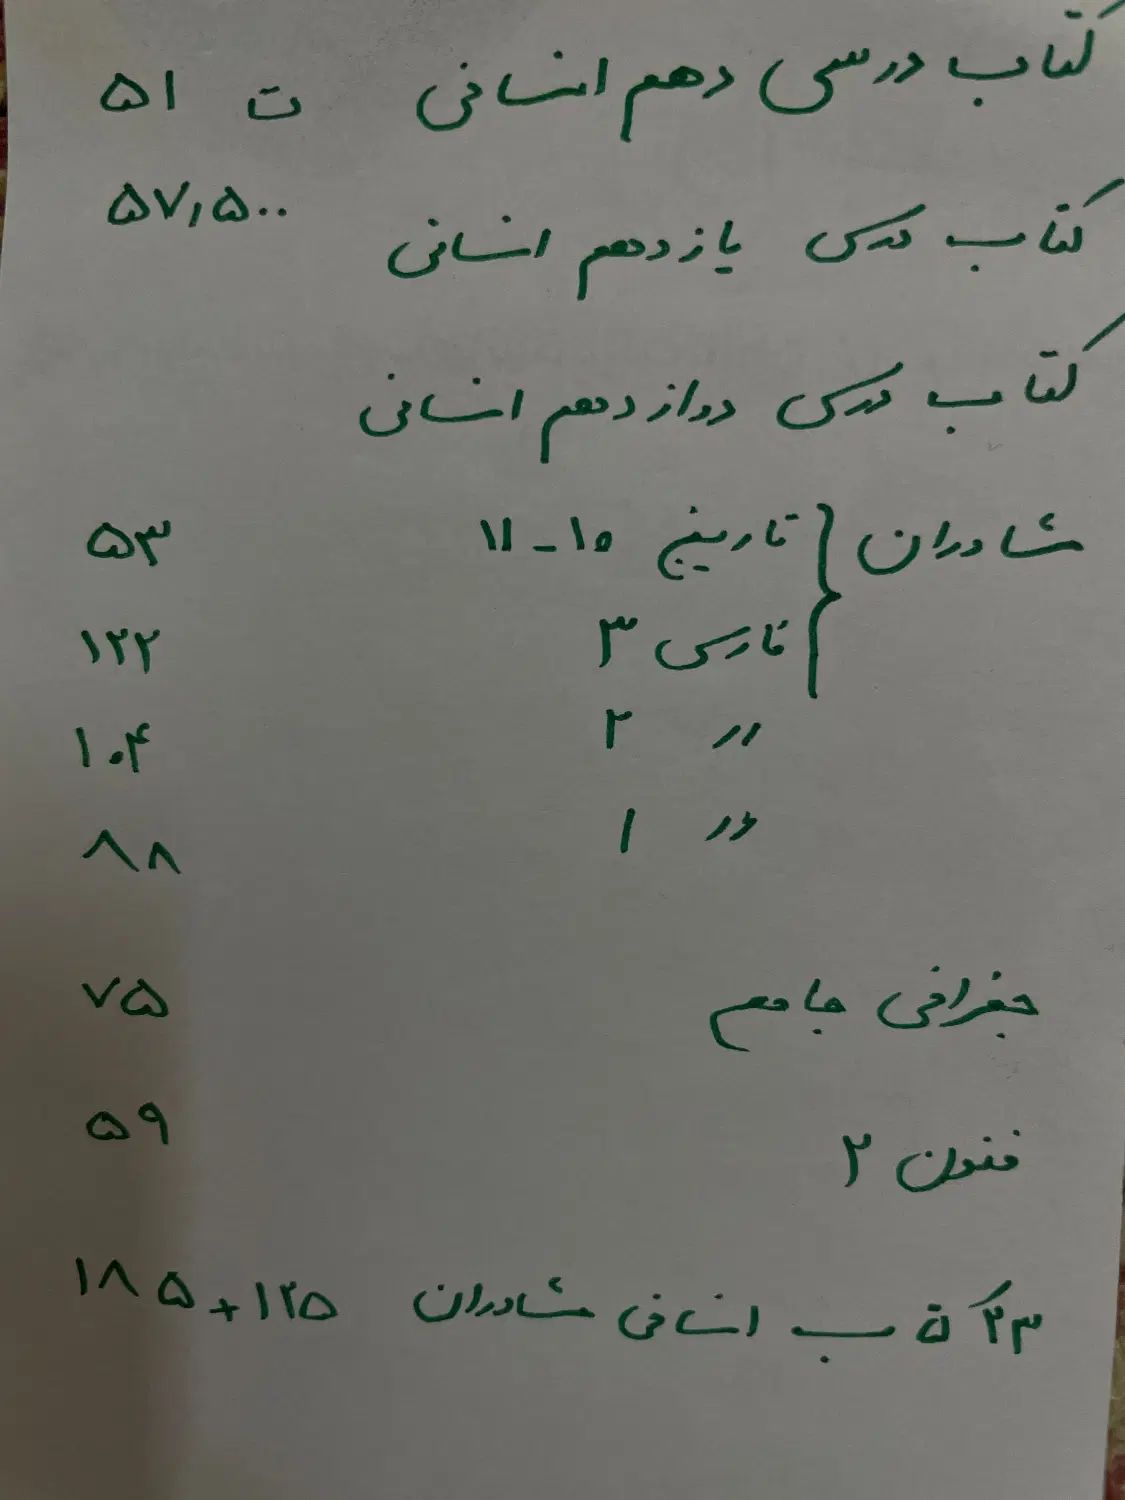 کتاب درسی دهم انسانی ت ۵۱
کتاب درسی یازدهم انسانی ۵۷,۵۰۰
کتاب درسی دوازدهم انسانی
مشاوران } تاریخ ۱۰-۱۱ ۵۳
فارسی ۳ ۱۲۲
〃 ۲ ۱۰۴
〃 ۱ ۸۸
جغرافی جامع ۷۵
فنون ۲ ۵۹
۲۳ کتاب انسانی مشاوران ۱۲۵ + ۱۸۵